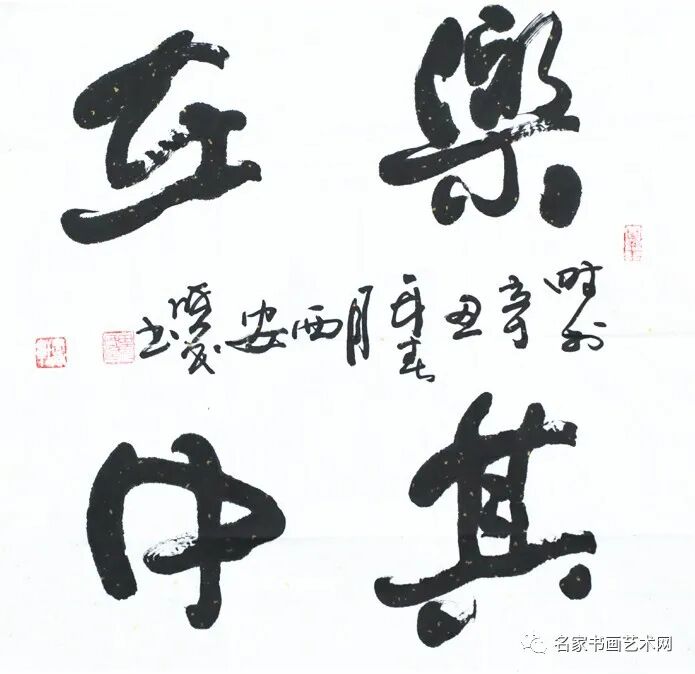 樂在
时于辛丑年春月西安
书
其中
名家书画艺术网